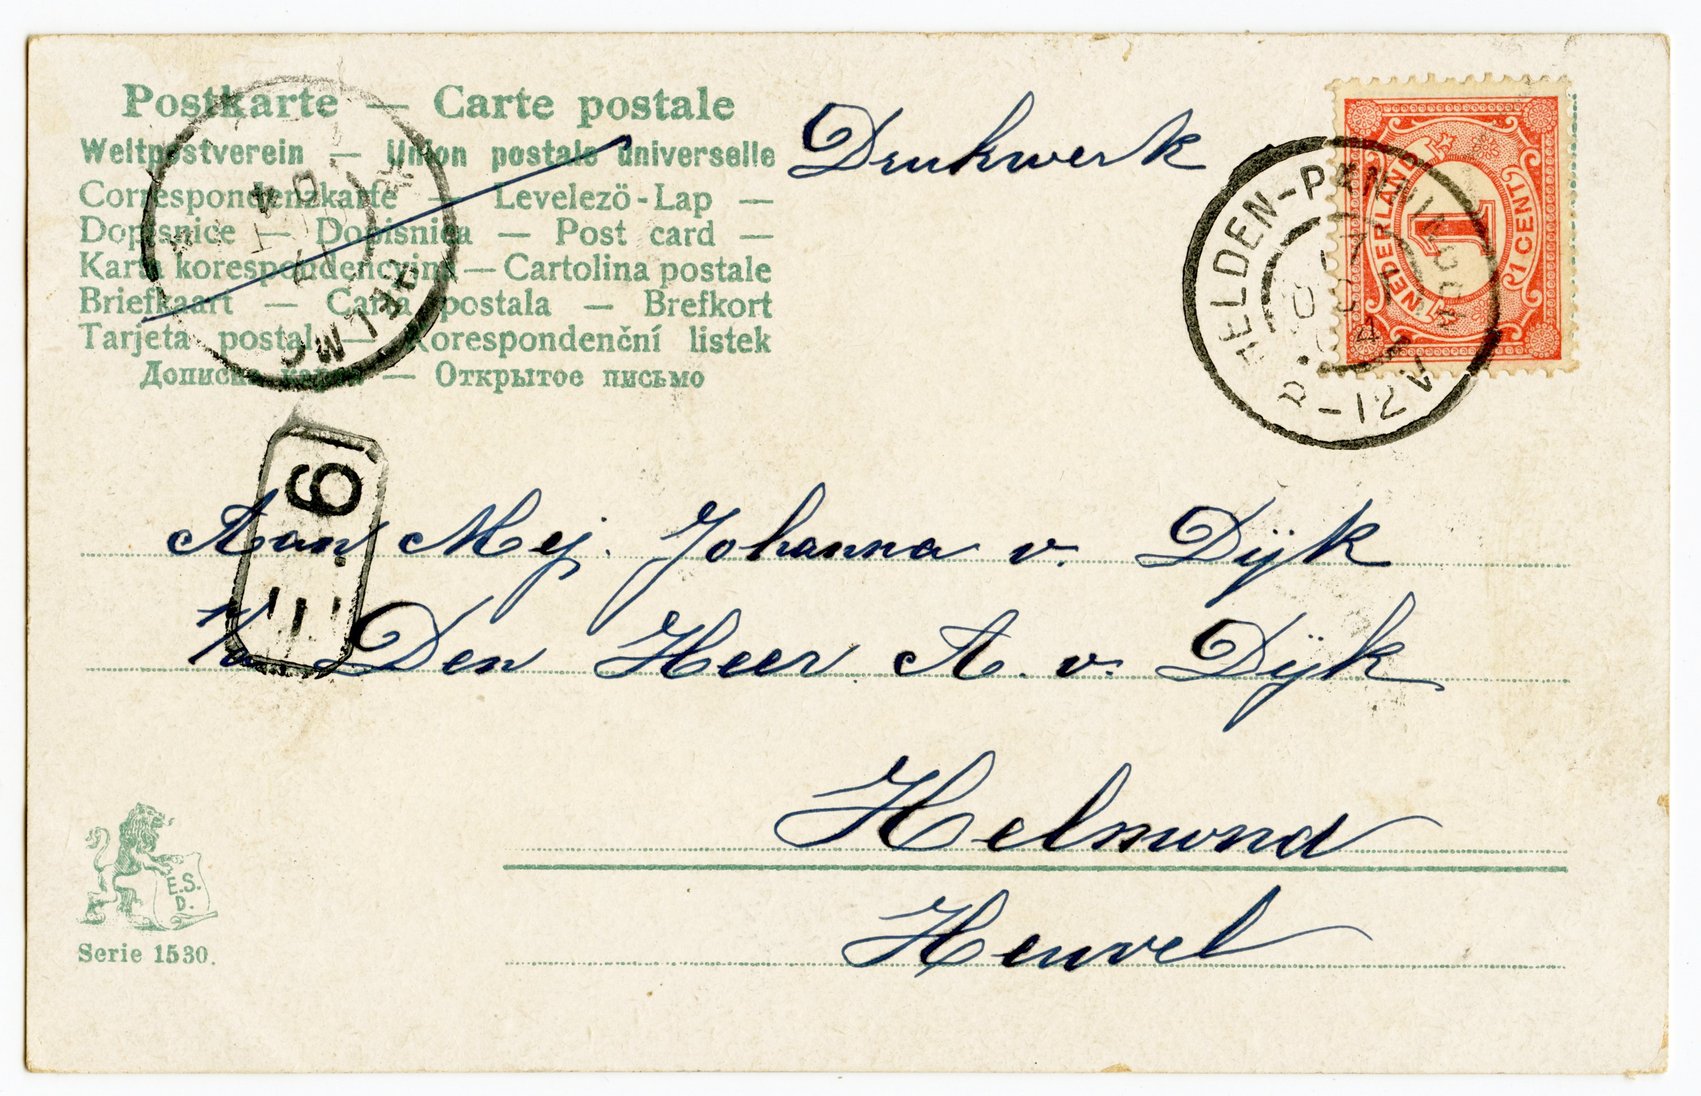 Postkarte — Carte postale
Weltpostverein — Union postale universelle
Correspondenzkarte — Levelező-Lap —
Dopisnice — Dopisnica — Post card —
Karta korespondencyjna — Cartolina postale
Briefkaart — Carta postala — Brefkort
Tarjeta postal — Korespondenční listek
Дописна карта — Открытое письмо
Drukwerk
NEDERLAND
1
1 CENT
HELDEN-PANNINGEN
8-12V
HELMOND
6
Aan Mej. Johanna v. Dijk
p/a Den Heer A. v. Dijk
Helmond
Heuvel
E.S.
D.
Serie 1530.